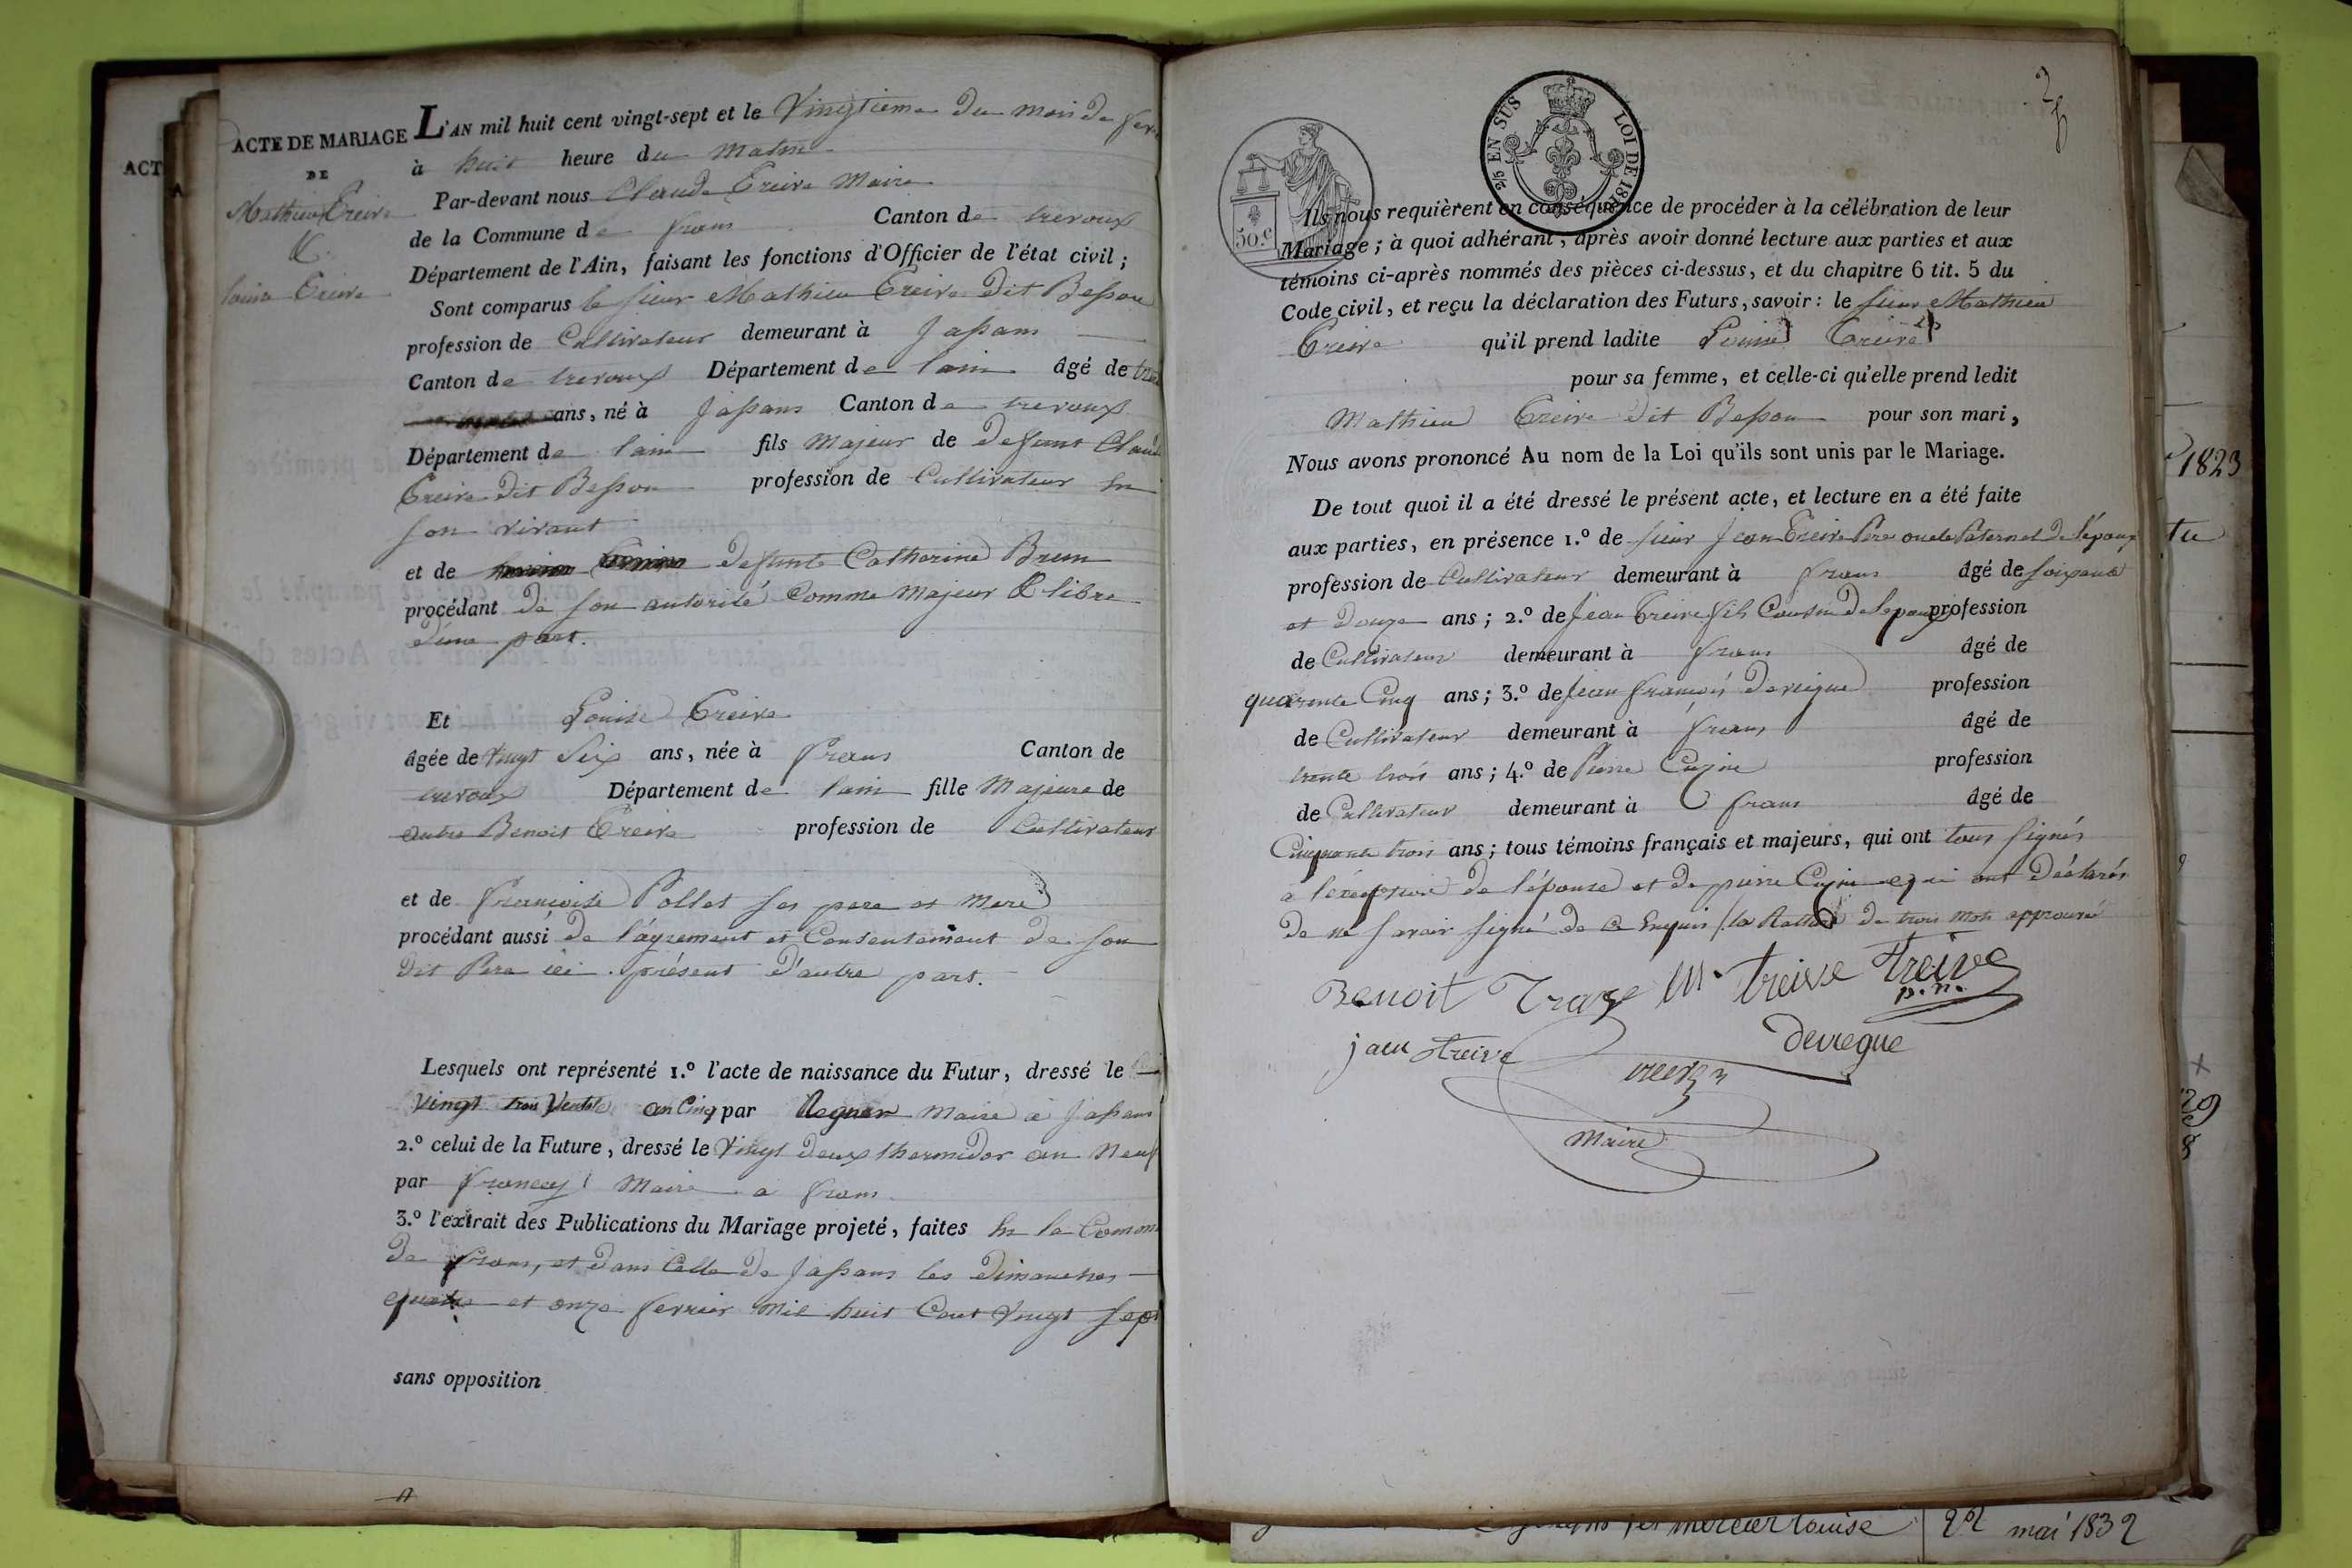 ACT
A
ACTE DE MARIAGE
DE
Mathieu Treive
&
louise Treive
L'AN mil huit cent vingt-sept et le Vingtieme du mois de fev
à huit heure du matin
Par-devant nous Claude Treive Maire
de la Commune de frans Canton de trevoux
Département de l'Ain, faisant les fonctions d'Officier de l'état civil ;
Sont comparus le sieur Mathieu Treive Dit Besson
profession de Cultivateur demeurant à Jassans
Canton de trevoux Département de lain âgé de
ans, né à Jassans Canton de trevoux
Département de lain fils Majeur de defunt Claud
Treive dit Besson profession de Cultivateur En
son vivant
et de defunte Catherine Brun
procédant de son autorité Comme Majeur & libre
d'une part.
Et Louise Treive
âgée de vingt Six ans, née à frans Canton de
trevoux Département de lain fille Majeure de
autre Benoit Treive profession de Cultivateur
et de françoise Pollet ses pere et Mere
procédant aussi de l'agrement et Consentement de son
dit Pere ici présent d'autre part.
Lesquels ont représenté 1.º l'acte de naissance du Futur, dressé le
Vingt trois Ventose an Cinq par Maire a Jassans
2.º celui de la Future, dressé le Vingt deux thermidor an Neuf
par Maire a frans
3.º l'extrait des Publications du Mariage projeté, faites En la Comm
de frans, et dans Celle de Jassans les dimanches
quatre et onze fevrier Mil huit Cent Vingt sept
sans opposition
2/5 EN SUS LOI DE 181
50.C
Ils nous requièrent en conséquence de procéder à la célébration de leur
Mariage ; à quoi adhérant, après avoir donné lecture aux parties et aux
témoins ci-après nommés des pièces ci-dessus, et du chapitre 6 tit. 5 du
Code civil, et reçu la déclaration des Futurs, savoir : le sieur Mathieu
Treive qu'il prend ladite Louise Treive
pour sa femme, et celle-ci qu'elle prend ledit
Mathieu Treive dit Besson pour son mari,
Nous avons prononcé Au nom de la Loi qu'ils sont unis par le Mariage.
De tout quoi il a été dressé le présent acte, et lecture en a été faite
aux parties, en présence 1.º de sieur Jean Treive Pere oncle Paternel de l'epoux
profession de Cultivateur demeurant à frans âgé de soixante
et douze ans ; 2.º de Jean Treive fils Cousin de lepoux profession
de Cultivateur demeurant à frans âgé de
quarente Cinq ans ; 3.º de Jean françois Devreigne profession
de Cultivateur demeurant à frans âgé de
trente trois ans ; 4.º de Pierre Cuzine profession
de Cultivateur demeurant à frans âgé de
Cinquante trois ans ; tous témoins français et majeurs, qui ont tous signés
a l'exeption de l'épouse et de pierre qui ont Déclarés
de ne savoir signé de ce Enquis la Rature de trois mots approuvé
Benoit M. treive Treive
p. n.
jaen treive devregne
Maire
1823
tu
29
8
mercier louise 22 mai 1832